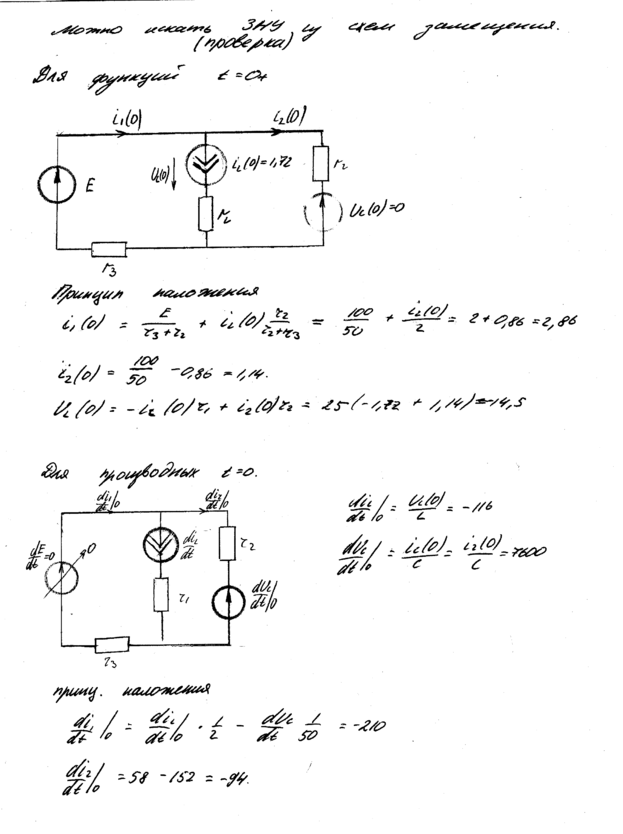 Можно искать ЗНУ из схем замещения.
(проверка)
Для функций t=0+
i₁(0) i₂(0)
E U_L(0) i_L(0)=1,72 r₂
r_L U_c(0)=0
r₃
Принцип наложения
i₁(0) = E/(r₃+r₂) + i_L(0) r₂/(r₂+r₃) = 100/50 + i_L(0)/2 = 2+0,86=2,86
i₂(0) = 100/50 -0,86 = 1,14.
U_L(0) = -i_L(0)r₁ + i₂(0)r₂ = 25(-1,72 + 1,14)=-14,5
Для производных t=0.
di₁/dt|₀ di₂/dt|₀
dE/dt=0 0 di_L/dt r₂
r₁ dU_c/dt|₀
r₃
di_L/dt|₀ = U_L(0)/L = -116
dU_c/dt|₀ = i_c(0)/C = i₂(0)/C = 7600
принц. наложения
di₁/dt|₀ = di_L/dt|₀ · 1/2 - dU_c/dt 1/50 = -210
di₂/dt|₀ = 58 -152 = -94.